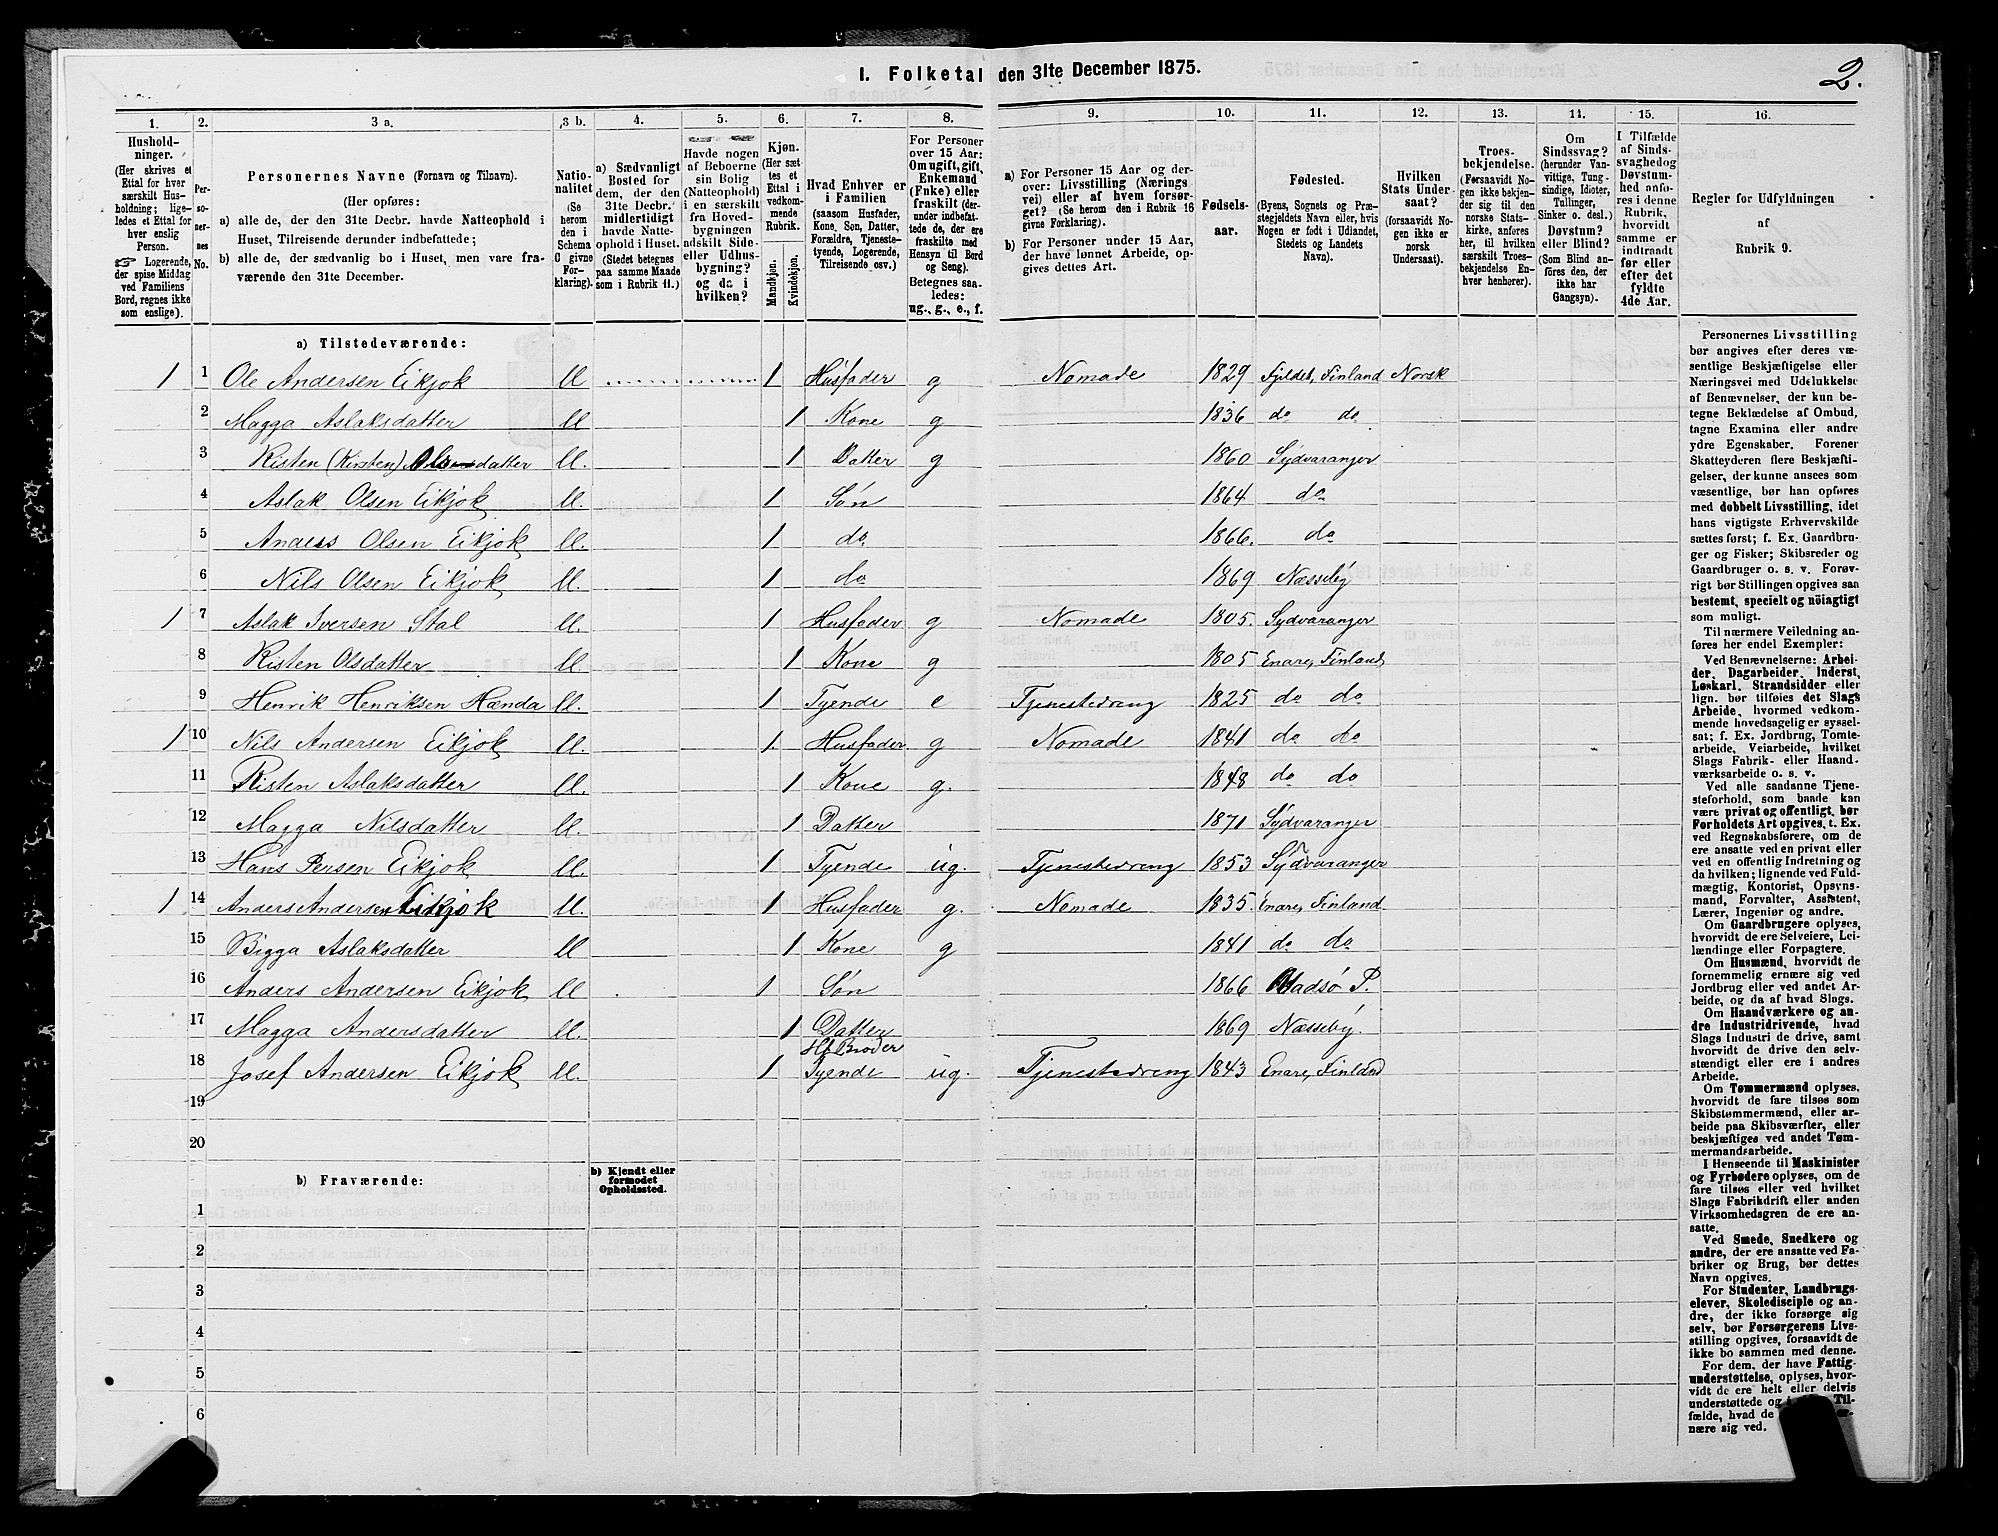 I. Folketal den 31te December 1875.
2.
1. 2. 3 a. 3 b. 4. 5. 6. 7. 8. 9. 10. 11. 12. 13. 14. 15. 16.
Hushold-
ninger.
(Her skrives et
Ettal for hver
særskilt Hus-
holdning; lige-
ledes et Ettal for
hver enslig
Person.
☞ Logerende,
der spise Middag
ved Familiens
Bord, regnes ikke
som enslige).
Per-
so-
ner-
nes
No.
Personernes Navne (Fornavn og Tilnavn).
(Her opføres:
a) alle de, der den 31te Decbr. havde Natteophold i
Huset, Tilreisende derunder indbefattede;
b) alle de, der sædvanlig bo i Huset, men vare fra-
værende den 31te December.
Natio-
nalitet
(Se
herom
den i
Schema
C givne
For-
klaring).
a) Sædvanligt
Bosted for
dem, der den
31te Decbr.
midlertidigt
havde Natte-
ophold i Huset.
(Stedet betegnes
paa samme Maade
som i Rubrik 11.)
Havde nogen
af Beboerne
sin Bolig
(Natteophold)
i en særskilt
fra Hoved-
bygningen
adskilt Side-
eller Udhus-
bygning?
og da i
hvilken?
Kjøn.
(Her sæt-
tes et
Ettal i
vedkom-
mende
Rubrik.
Mandkjøn.
Kvindekjøn.
Hvad Enhver er
i Familien
(saasom Husfader,
Kone, Søn, Datter,
Forældre, Tjeneste-
tyende, Logerende,
Tilreisende osv.)
For Personer
over 15 Aar:
Om ugift, gift,
Enkemand
(Enke) eller
fraskilt (der-
under indbefat-
tede de, der ere
fraskilte med
Hensyn til Bord
og Seng).
Betegnes saa-
ledes:
ug., g., e., f.
a) For Personer 15 Aar og der-
over: Livsstilling (Nærings
vei) eller af hvem forsør-
get? (Se herom den i Rubrik 16
givne Forklaring).
b) For Personer under 15 Aar,
der have lønnet Arbeide, op-
gives dettes Art.
Fødsels-
aar.
Fødested.
(Byens, Sognets og Præ-
stegjeldets Navn eller, hvis
Nogen er født i Udlandet,
Stedets og Landets
Navn).
Hvilken
Stats Under-
saat?
(forsaavidt No-
gen ikke er
norsk
Undersaat).
Troes-
bekjendelse.
(Forsaavidt No-
gen ikke bekjen-
der sig til den
norske Stats-
kirke, anføres
her, til hvilken
særskilt Troes-
bekjendelse En-
hver henhører).
Om
Sindssvag?
(herunder Van-
vittige, Tung-
sindige, Idioter,
Tullinger,
Sinker o. desl.)
Døvstum?
eller Blind?
(Som Blind an-
føres den, der
ikke har
Gangsyn).
I Tilfælde
af Sinds-
svaghed og
Døvstum-
hed anfø-
res i denne
Rubrik,
hvorvidt
samme er
indtraadt
før eller
efter det
fyldte
4de Aar.
Regler for Udfyldningen
af
Rubrik 9.
a) Tilstedeværende:
1 1 Ole Andersen Eikjok ll 1 Husfader g Nomade 1829 Fjeldet, Finland Norsk
2 Magga Aslaksdatter ll 1 Kone g 1836 do do
3 Risten (Kirsten) Olsdatter ll. 1 Datter g 1860 Sydvaranger
4 Aslak Olsen Eikjok ll. 1 Søn 1864 do
5 Anders Olsen Eikjok ll. 1 do 1866. do
6 Nils Olsen Eikjok ll. 1 do 1869 Næsseby
1 7 Aslak Iversen Stal ll. 1 Husfader g Nomade 1805. Sydvaranger
8 Risten Olsdatter ll. 1 Kone g 1805 Enare, Finland
9 Henrik Henriksen Hænda ll. 1 Tyende e Tjenestedreng 1825 do do
1 10 Nils Andersen Eikjok ll. 1. Husfader g Nomade 1841 do do
11 Risten Aslaksdatter ll. 1 Kone g. 1848 do do
12 Magga Nilsdatter ll. 1 Datter 1871 Sydvaranger
13 Hans Persen Eikjok ll. 1 Tyende ug. Tjenestedreng 1853 Sydvaranger
1 14 Anders Andersen Eikjok ll. 1 Husfader g. Nomade 1835. Enare, Finland.
15 Bigga Aslaksdatter ll 1 Kone g 1841 do do
16 Anders Andersen Eikjok ll 1 Søn 1866 Vadsø P.
17 Magga Andersdatter ll 1 Datter 1869 Næsseby.
18 Josef Andersen Eikjok ll. 1 Hf Broder Tyende ug. Tjenestedreng 1843 Enare, Finland
19
20
b) Fraværende:
b) Kjendt eller
formodet
Opholdssted.
1
2
3
4
5
6
Personernes Livsstilling
bør angives efter deres væ-
sentlige Beskjæftigelse eller
Næringsvei med Udelukkelse
af Benævnelser, der kun be-
tegne Beklædelse af Ombud,
tagne Examina eller andre
ydre Egenskaber. Forener
Skatteyderen flere Beskjæfti-
gelser, der kunne ansees som
væsentlige, bør han opføres
med dobbelt Livsstilling, idet
hans vigtigste Erhvervskilde
sættes først; f. Ex. Gaardbru-
ger og Fisker; Skibsreder og
Gaardbruger o. s. v. Forøv-
rigt bør Stillingen opgives saa
bestemt, specielt og nöiagtigt
som muligt.
Til nærmere Veiledning an-
føres her endel Exempler:
Ved Benævnelserne: Arbei-
der, Dagarbeider, Inderst,
Løskarl, Strandsidder eller
lign. bør tilføies det Slags
Arbeide, hvormed vedkom-
mende hovedsagelig er syssel-
sat; f. Ex. Jordbrug, Tomte-
arbeide, Veiarbeide, hvilket
Slags Fabrik- eller Haand-
værksarbeide o. s. v.
Ved alle saadanne Tjene-
steforhold, som baade kan
være privat og offentligt, bør
Forholdets Art opgives, t. Ex.
ved Regnskabsførere, om de
ere ansatte ved en privat eller
ved en offentlig Indretning og
da hvilken; ligened​e ved Fuld-
mægtig, Kontorist, Opsyns-
mand, Forvalter, Assistent,
Lærer, Ingeniør og andre.
Om Gaardbrugere oplyses,
hvorvidt de ere Selveiere, Lei-
lændinge eller Forpagtere.
Om Husmænd, hvorvidt de
fornemmelig ernære sig ved
Jordbrug eller ved andet Ar-
beide, og da af hvad Slags.
Om Haandværkere og an-
dre Industridrivende, hvad
Slags Industri de drive, samt
hvorvidt de drive den selv-
stændigt eller ere i andres
Arbeide.
Om Tømmermænd oplyses,
hvorvidt de fare tilsøs som
Skibstømmermænd, eller ar-
beide paa Skibsværfter, eller
beskjæftiges ved andet Tøm-
mermandsarbeide.
I Henseende til Maskinister
og Fyrbødere oplyses, om de
fare tilsøs eller ved hvilket
Slags Fabrikdrift eller anden
Virksomhedsgren de ere an-
satte.
Ved Smede, Snedkere og
andre, der ere ansatte ved Fa-
briker og Brug, bør dettes
Navn opgives.
For Studenter, Landbrugs-
elever, Skoledisciple og an-
dre, der ikke forsørge sig
selv, bør Forsørgerens Livs-
stilling opgives, forsaavidt de
ikke bo sammen med denne.
For dem, der have Fattig-
understøttelse, oplyses, hvor-
vidt de ere helt eller delvis
understøttede og i Til-
fælde, hvad de
nære sig ved.